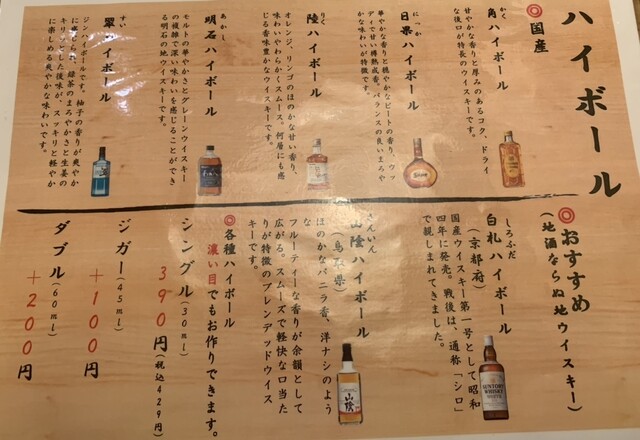 ハイボール
◎国産
かく
角ハイボール
甘やかな香りと厚みのあるコク、ドライ
な後口が特長のウイスキーです。
にっか
日果ハイボール
華やかな香りと穏やかなピートの香り、ウッ
ディで甘い樽熟成香。バランスの良いまろや
かな味わいが特徴です。
りく
陸ハイボール
オレンジ、リンゴのほのかな甘い香り、
味わいやわらかくスムース。何層にも感
じる香味豊かなウイスキーです。
あかし
明石ハイボール
モルトの華やかさとグレーンウイスキー
の複雑で深い味わいを感じることができ
る明石の地ウイスキーです。
すい
翠ハイボール
ジンハイボールです。柚子の香りが爽やか
緑茶のまろやかさと生姜の
キリっとした後味が、スッキリと軽やか
に楽しめる爽やかな味わいです。
◎おすすめ
(地酒ならぬ地ウイスキー)
しろふだ
白札ハイボール
(京都府)
国産ウイスキー第一号として昭和
四年に発売。戦後は、通称「シロ」
で親しまれてきました。
さんいん
山陰ハイボール
(鳥取県)
ほのかなバニラ香、洋ナシのよう
な
フルーティーな香りが余韻として
広がる。スムーズで軽快な口当た
りが特徴のブレンデッドウイス
キーです。
◎各種ハイボール
濃い目でもお作りできます。
シングル(30ml)
390円(税込429円)
ジガー(45ml)
+100円
ダブル(60ml)
+200円
SUNTORY
WHISKY
WHITE
山陰